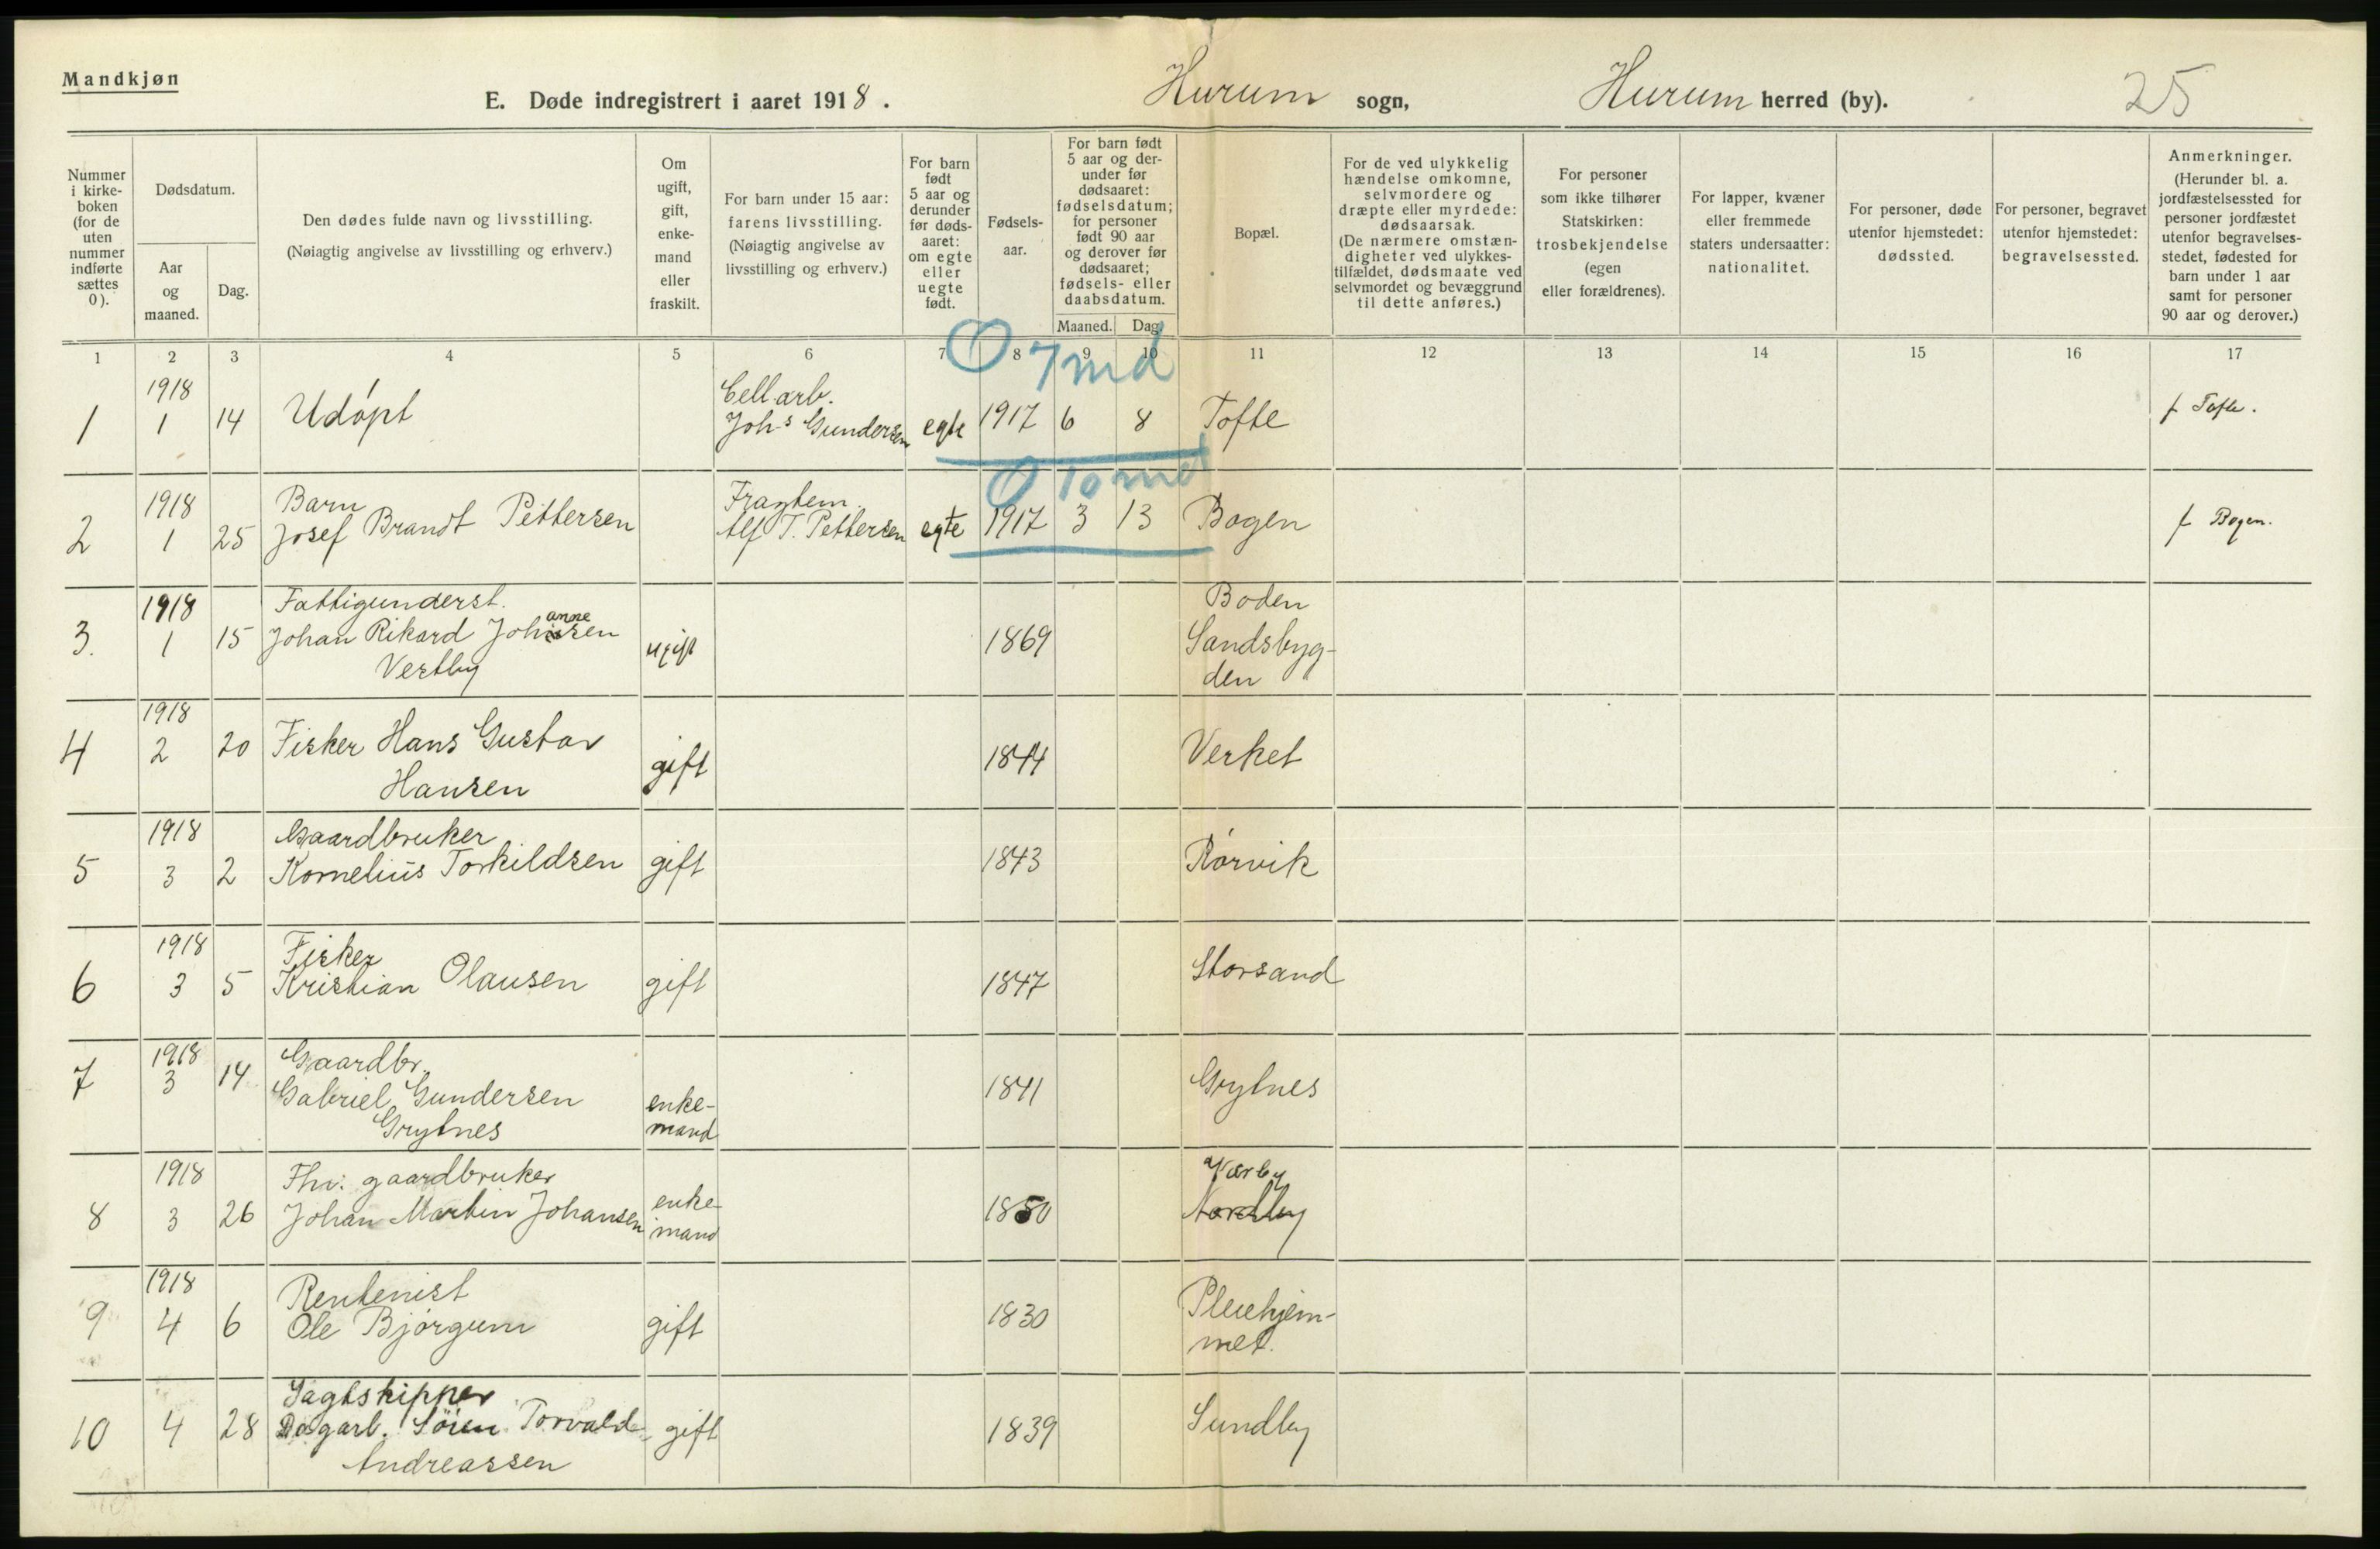 Mandkjøn
E. Døde indregistrert i aaret 1918.
Hurum sogn,
Hurum herred (by).
25
Nummer i kirke-boken (for de uten nummer indførte sættes 0).
Dødsdatum.
Aar og maaned.
Dag.
Den dødes fulde navn og livsstilling.
(Nøiagtig angivelse av livsstilling og erhverv.)
Om ugift, gift, enke-mand eller fraskilt.
For barn under 15 aar: farens livsstilling.
(Nøiagtig angivelse av livsstilling og erhverv.)
For barn født 5 aar og derunder før døds-aaret: om egte eller uegte født.
Fødsels-aar.
For barn født 5 aar og der-under før dødsaaret: fødselsdatum; for personer født 90 aar og derover før dødsaaret; fødsels- eller daabsdatum.
Maaned. Dag.
Bopæl.
For de ved ulykkelig hændelse omkomne, selvmordere og dræpte eller myrdede: dødsaarsak.
(De nærmere omstæn-digheter ved ulykkes-tilfældet, dødsmaate ved selvmordet og bevæggrund til dette anføres.)
For personer som ikke tilhører Statskirken: trosbekjendelse (egen eller forældrenes).
For lapper, kvæner eller fremmede staters undersaatter: nationalitet.
For personer, døde utenfor hjemstedet: dødssted.
For personer, begravet utenfor hjemstedet: begravelsessted.
Anmerkninger.
(Herunder bl. a. jordfæstelsessted for personer jordfæstet utenfor begravelses-stedet, fødested for barn under 1 aar samt for personer 90 aar og derover.)
1 2 3 4 5 6 7 8 9 10 11 12 13 14 15 16 17
0 7 md
1918 Cell.arb.
1 1 14 Udøpt Joh-s Gundersen egte 1917 6 8 Tofte f Tofte.
0 10 md
1918 Barn Fragtem
2 1 25 Josef Brandt Pettersen Alf T. Pettersen egte 1917 3 13 Bogen f Bogen.
1918 Fattigunderst. Boden
anne
3. 1 15 Johan Rikard Johansen ugift 1869 Sandsbyg-
Vestby den
1918
4 2 20 Fisker Hans Gustav gift 1844 Verket
Hansen
1918 Gaardbruker
5 3 2 Kornelius Torkildsen gift 1843 Rørvik
1918 Fisker
6 3 5 Kristian Olausen gift 1847 Storsand
1918 Gaardbr.
7 3 14 Gabriel Gundersen enke- 1841 Grytnes
Grytnes mand
1918 Fhv. gaardbruker enke- Kærby
8 3 26 Johan Martin Johansen mand 1850 Nordby
1918 Rentenist
9 4 6 Ole Bjørgum gift 1830 Pleiehjem-
met.
Jagtskipper
10 4 28 Dagarb. Søren Torvald gift 1839 Sundby
Andreassen